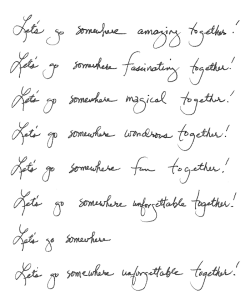 Let's go somewhere amazing together!
Let's go somewhere fascinating together!
Let's go somewhere magical together!
Let's go somewhere wonderous together!
Let's go somewhere fun together!
Let's go somewhere unforgettable together!
Let's go somewhere
Let's go somewhere unforgettable together!